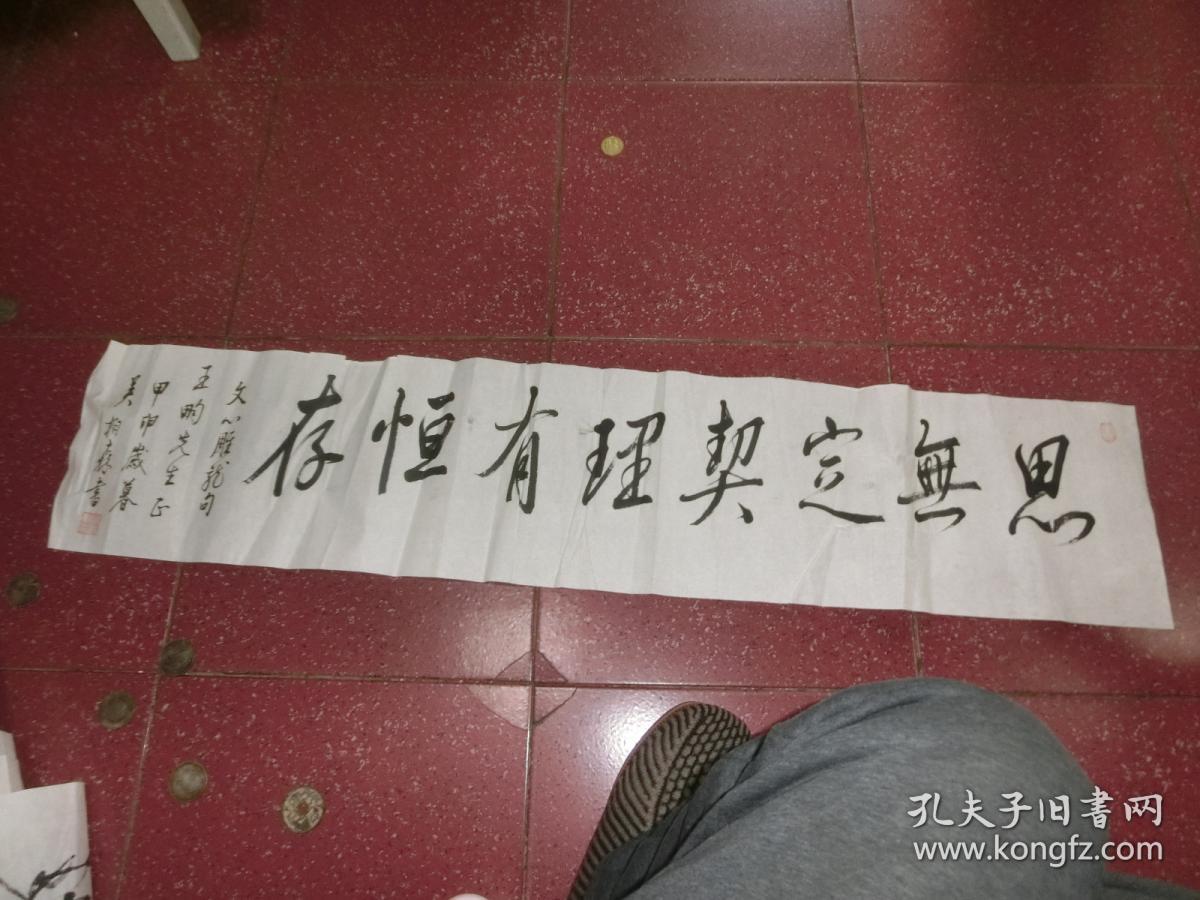 思無定契理有恒存
文心雕龍句
王昀先生正
甲申歲暮
吴柏森書
孔夫子旧书网
www.kongfz.com